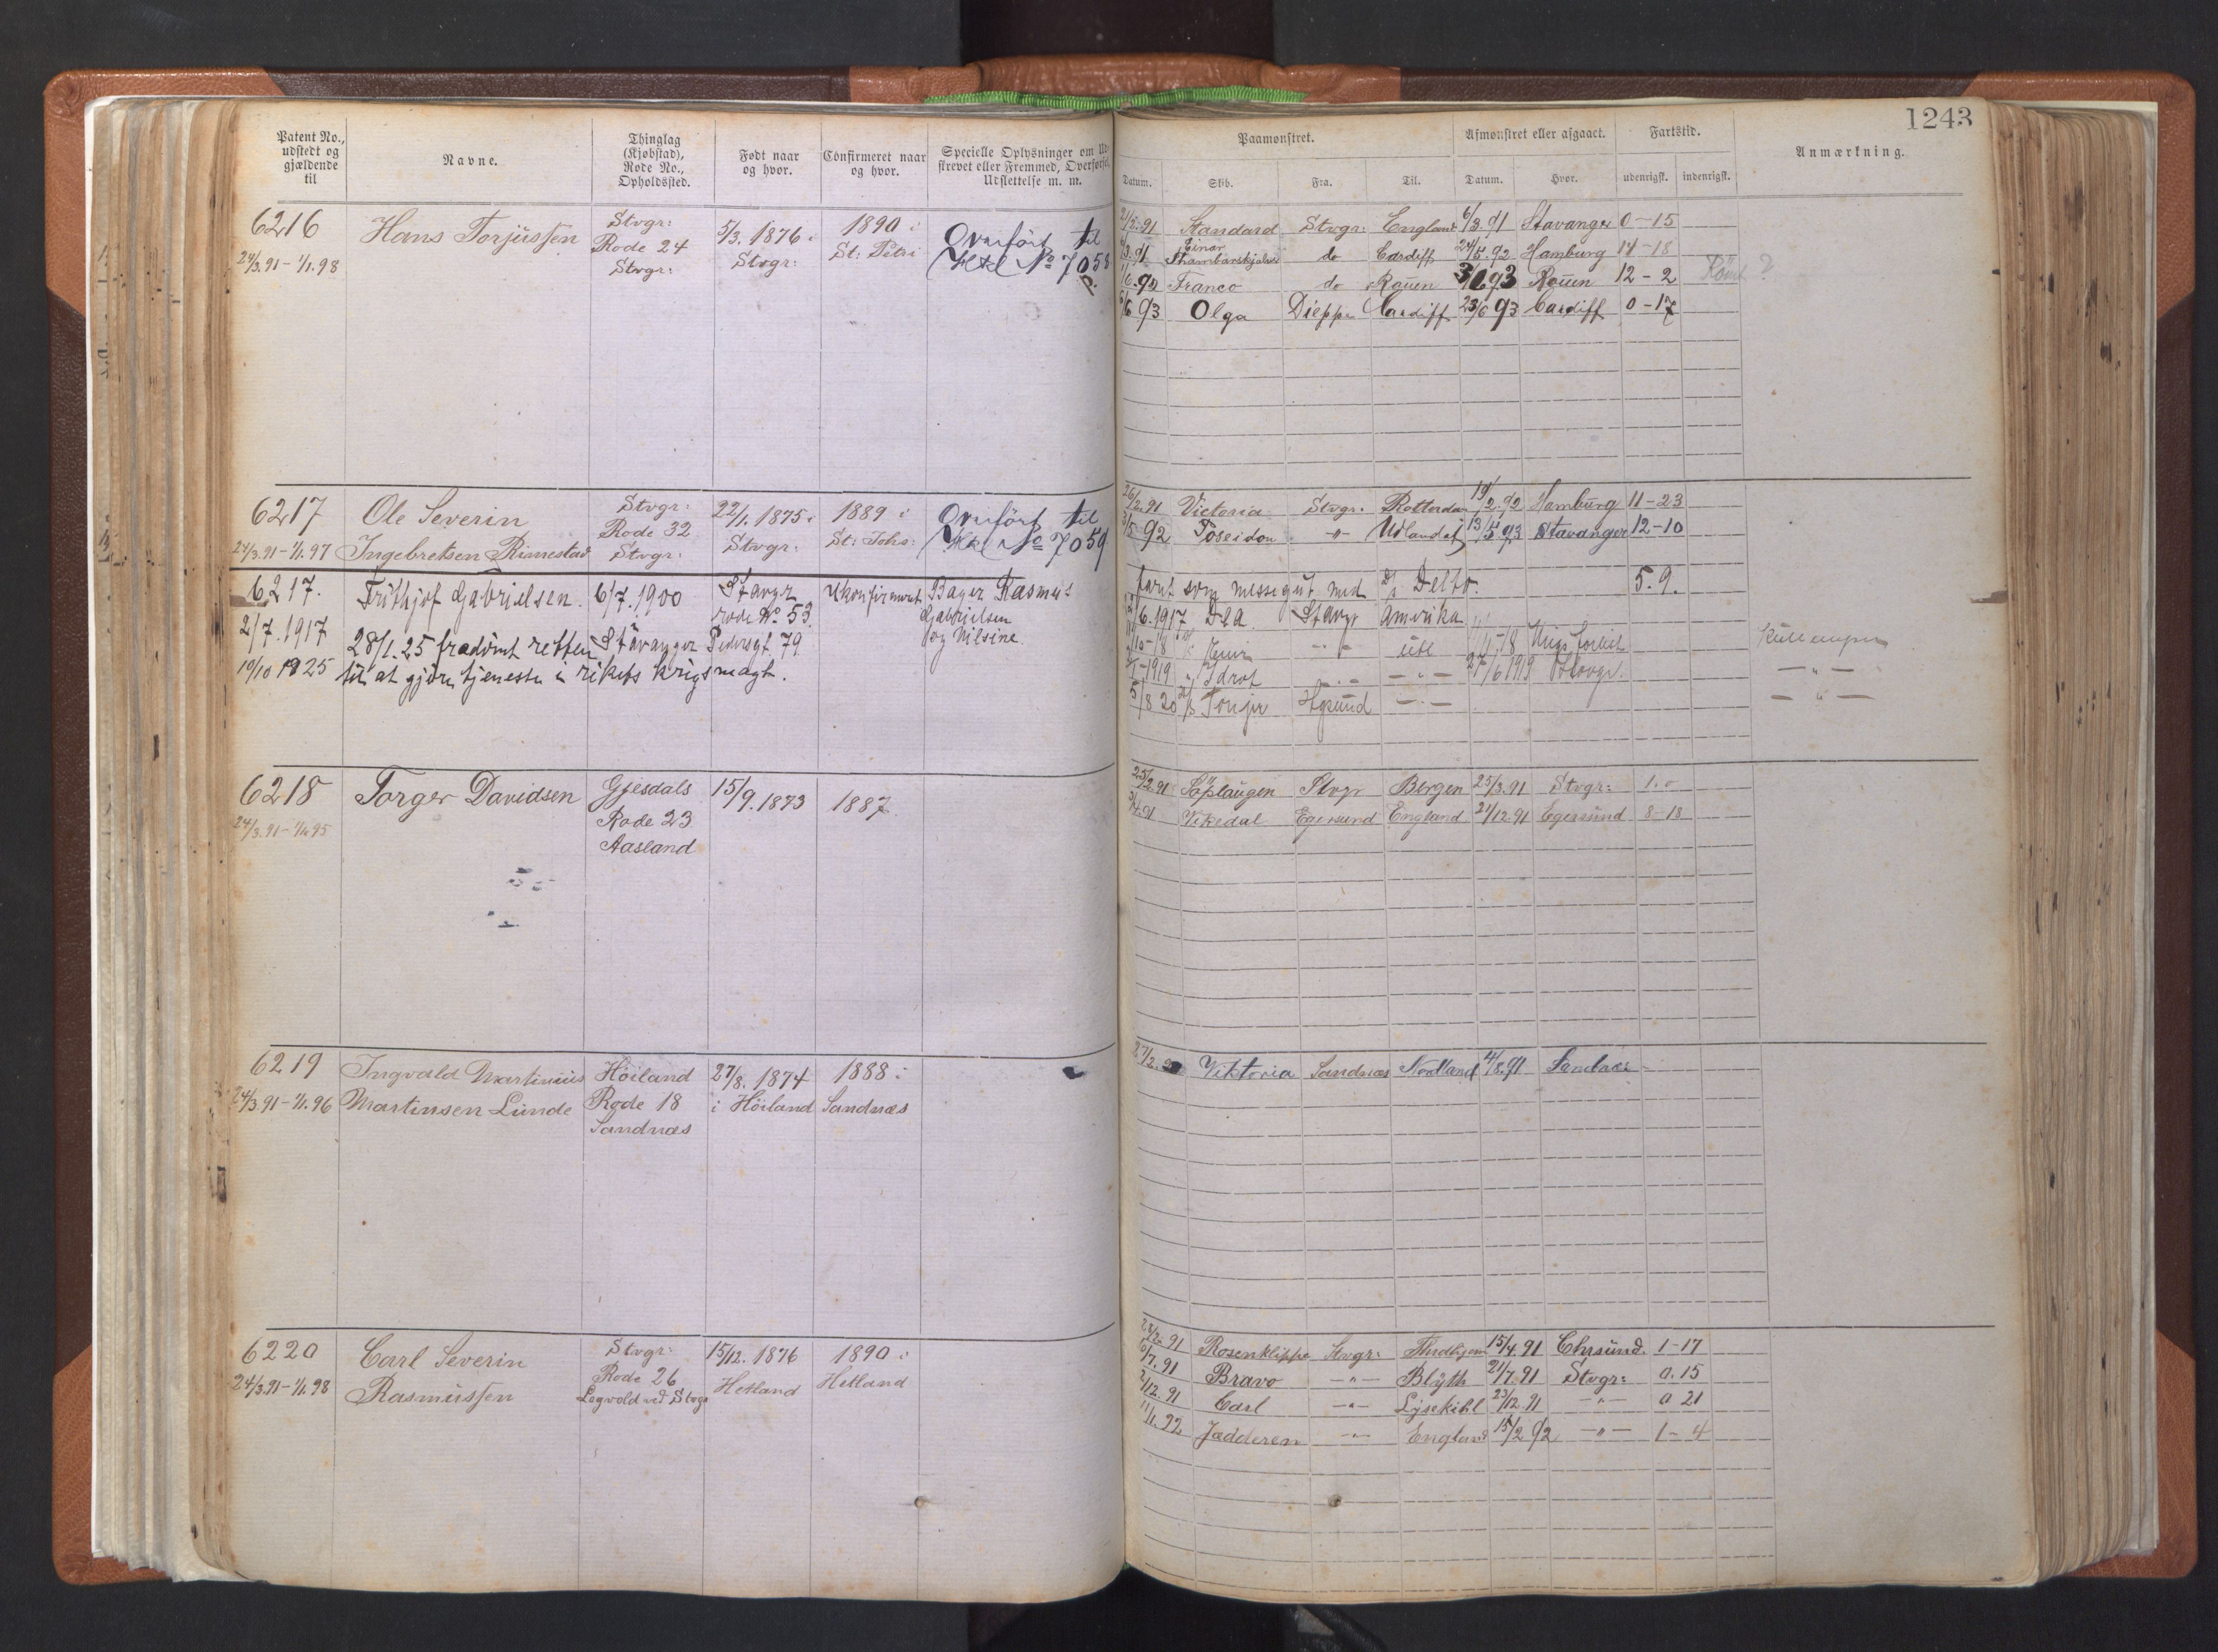 1243
Patent No., udstedt og gjældende til
Navne.
Thinglag (Kjøbstad), Rode No., Opholdssted.
Født naar og hvor.
Confirmeret naar og hvor.
Specielle Oplysninger om Ud-
skrevet eller Fremmed, Overførsel,
Udslettelse m. m.
Paamønstret.
Afmønstret eller afgaaet.
Fartstid.
Anmærkning.
Datum. Skib. Fra. Til. Datum. Hvor. udenrigsk. indenrigsk.
6216 Hans Torjussen Stvgr: 5/3. 1876 i 1890 i Overført til
24/3.91 - 1/1.98 Rode 24 Stvgr: St: Petri No 7058
Stvgr:
Standard Stvgr: England 6/3.91 Stavanger 0-15
Einar Thambarskjelver do Cardiff 24/5.92 Hamburg 14-18
Franco do Rouen Rouen 12-2
Olga Dieppe Cardiff 23/6 93 Cardiff 0-17
6217 Ole Severin Stvgr: 22/1. 1875 i 1889 i Overført til
24/3.91 - 1/1.97 Ingebretsen Rimestad Rode 32 Stvgr: St: Johs: No 7059
Stvgr:
26/2.91 Victoria Stvgr. Rotterdam 19/2.92 Hamburg 11-23
92 Poseidon -"- Udlandet 13/5 93 Stavanger 12-10
6217. Frithjof Gabrielsen. 6/7.1900 Stavgr Ukonfirmert Bager Rasmus
rode No. 53. Gabrielsen
2/7.1917 28/1.25 fradømt retten Stavanger Pedersgt. 79 og Nilsine
19/10 1925 til at gjøre tjeneste i rikets krigsmagt.
faret som messegut med D/S Delto. 5.9.
6.1917 Stavgr Amerika
ute
1919 Idrot 27/6 1919
5/8 20 Hgsund
6218 Torger Davidsen Gjesdals 15/9.1873 1887
24/3.91 - 1/1.95 Rode 23
Aasland
25/2.91 Stvgr Bergen 25/3.91 Stvgr: 1.0
Vikedal Egersund England 21/12.91 Egersund 8-18
6219 Ingvald Martinius Høiland 27/8. 1874 1888 i
24/3.91 - 1/1.96 Martinsen Lunde Rode 18 i Høiland Sandnæs
Sandnæs
Viktoria Sandnæs Nordland 4/8.91 Sandnæs
6220 Carl Severin Stvgr: 15/12. 1876 1890 i
24/3.91 - 1/1.98 Rasmussen Rode 26 Hetland Hetland
Lagvold ved Stvgr
28/2.91 Rosenklippe Stvgr: 15/4.91 Chrsund. 1-17
7.91 Bravo -"- Blyth 21/7.91 Stvgr: 0.15
12.91 Carl -"- Lysekihl 23/12.91 -"- 0 21
1.92 Jædderen -"- England 15/2 92 -"- 1-4